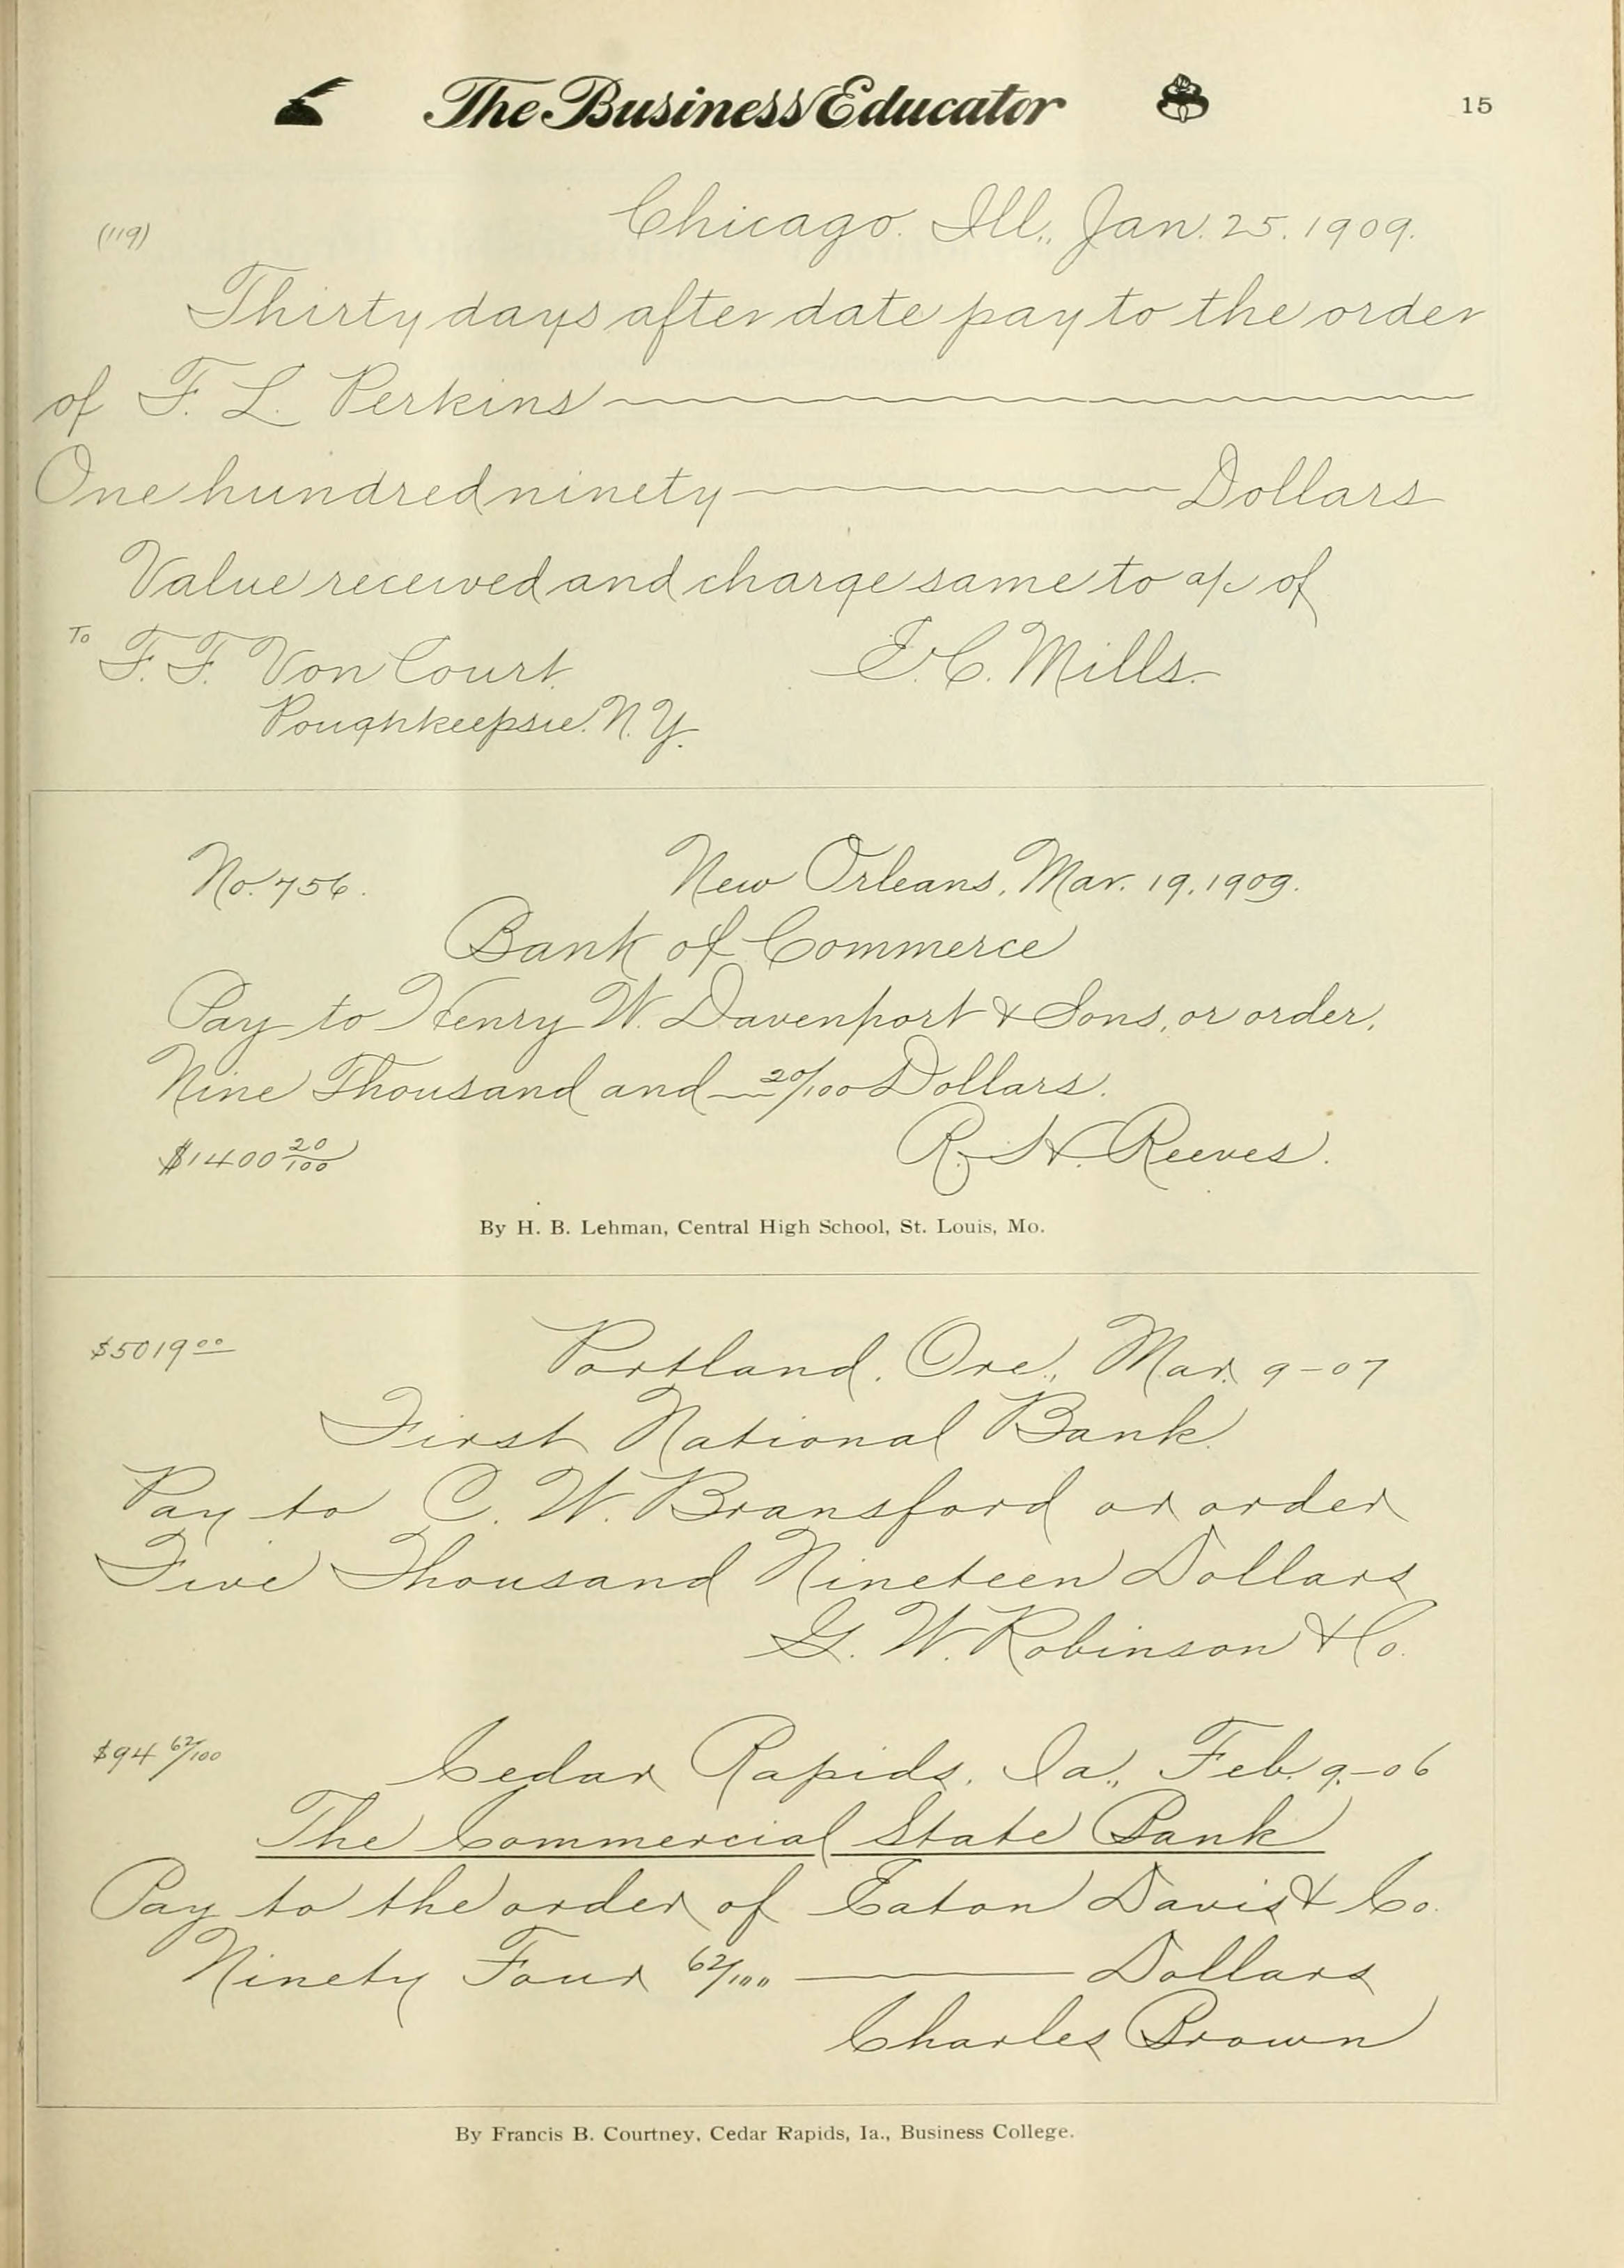 The Business Educator
15
(119)
Chicago. Ill., Jan. 25. 1909.
Thirty days after date pay to the order
of F. L. Perkins
One hundred ninety Dollars
Value received and charge same to a/c of
To F. F. Von Court.
E. C. Mills.
Poughkeepsie. N. Y.
No. 756.
New Orleans, Mar. 19, 1909.
Bank of Commerce
Pay to Henry W. Davenport & Sons, or order,
Nine Thousand and 20/100 Dollars.
$1400 20/100
R. H. Reeves.
By H. B. Lehman, Central High School, St. Louis, Mo.
$5019 00
Portland, Ore., Mar. 9-07
First National Bank.
Pay to C. W. Bransford or order
Five Thousand Nineteen Dollars
G. W. Robinson & Co.
$94 62/100
Cedar Rapids, Ia., Feb. 9-06
The Commercial State Bank
Pay to the order of Eaton Davis & Co.
Ninety Four 62/100 Dollars
Charles Brown
By Francis B. Courtney, Cedar Rapids, Ia., Business College.